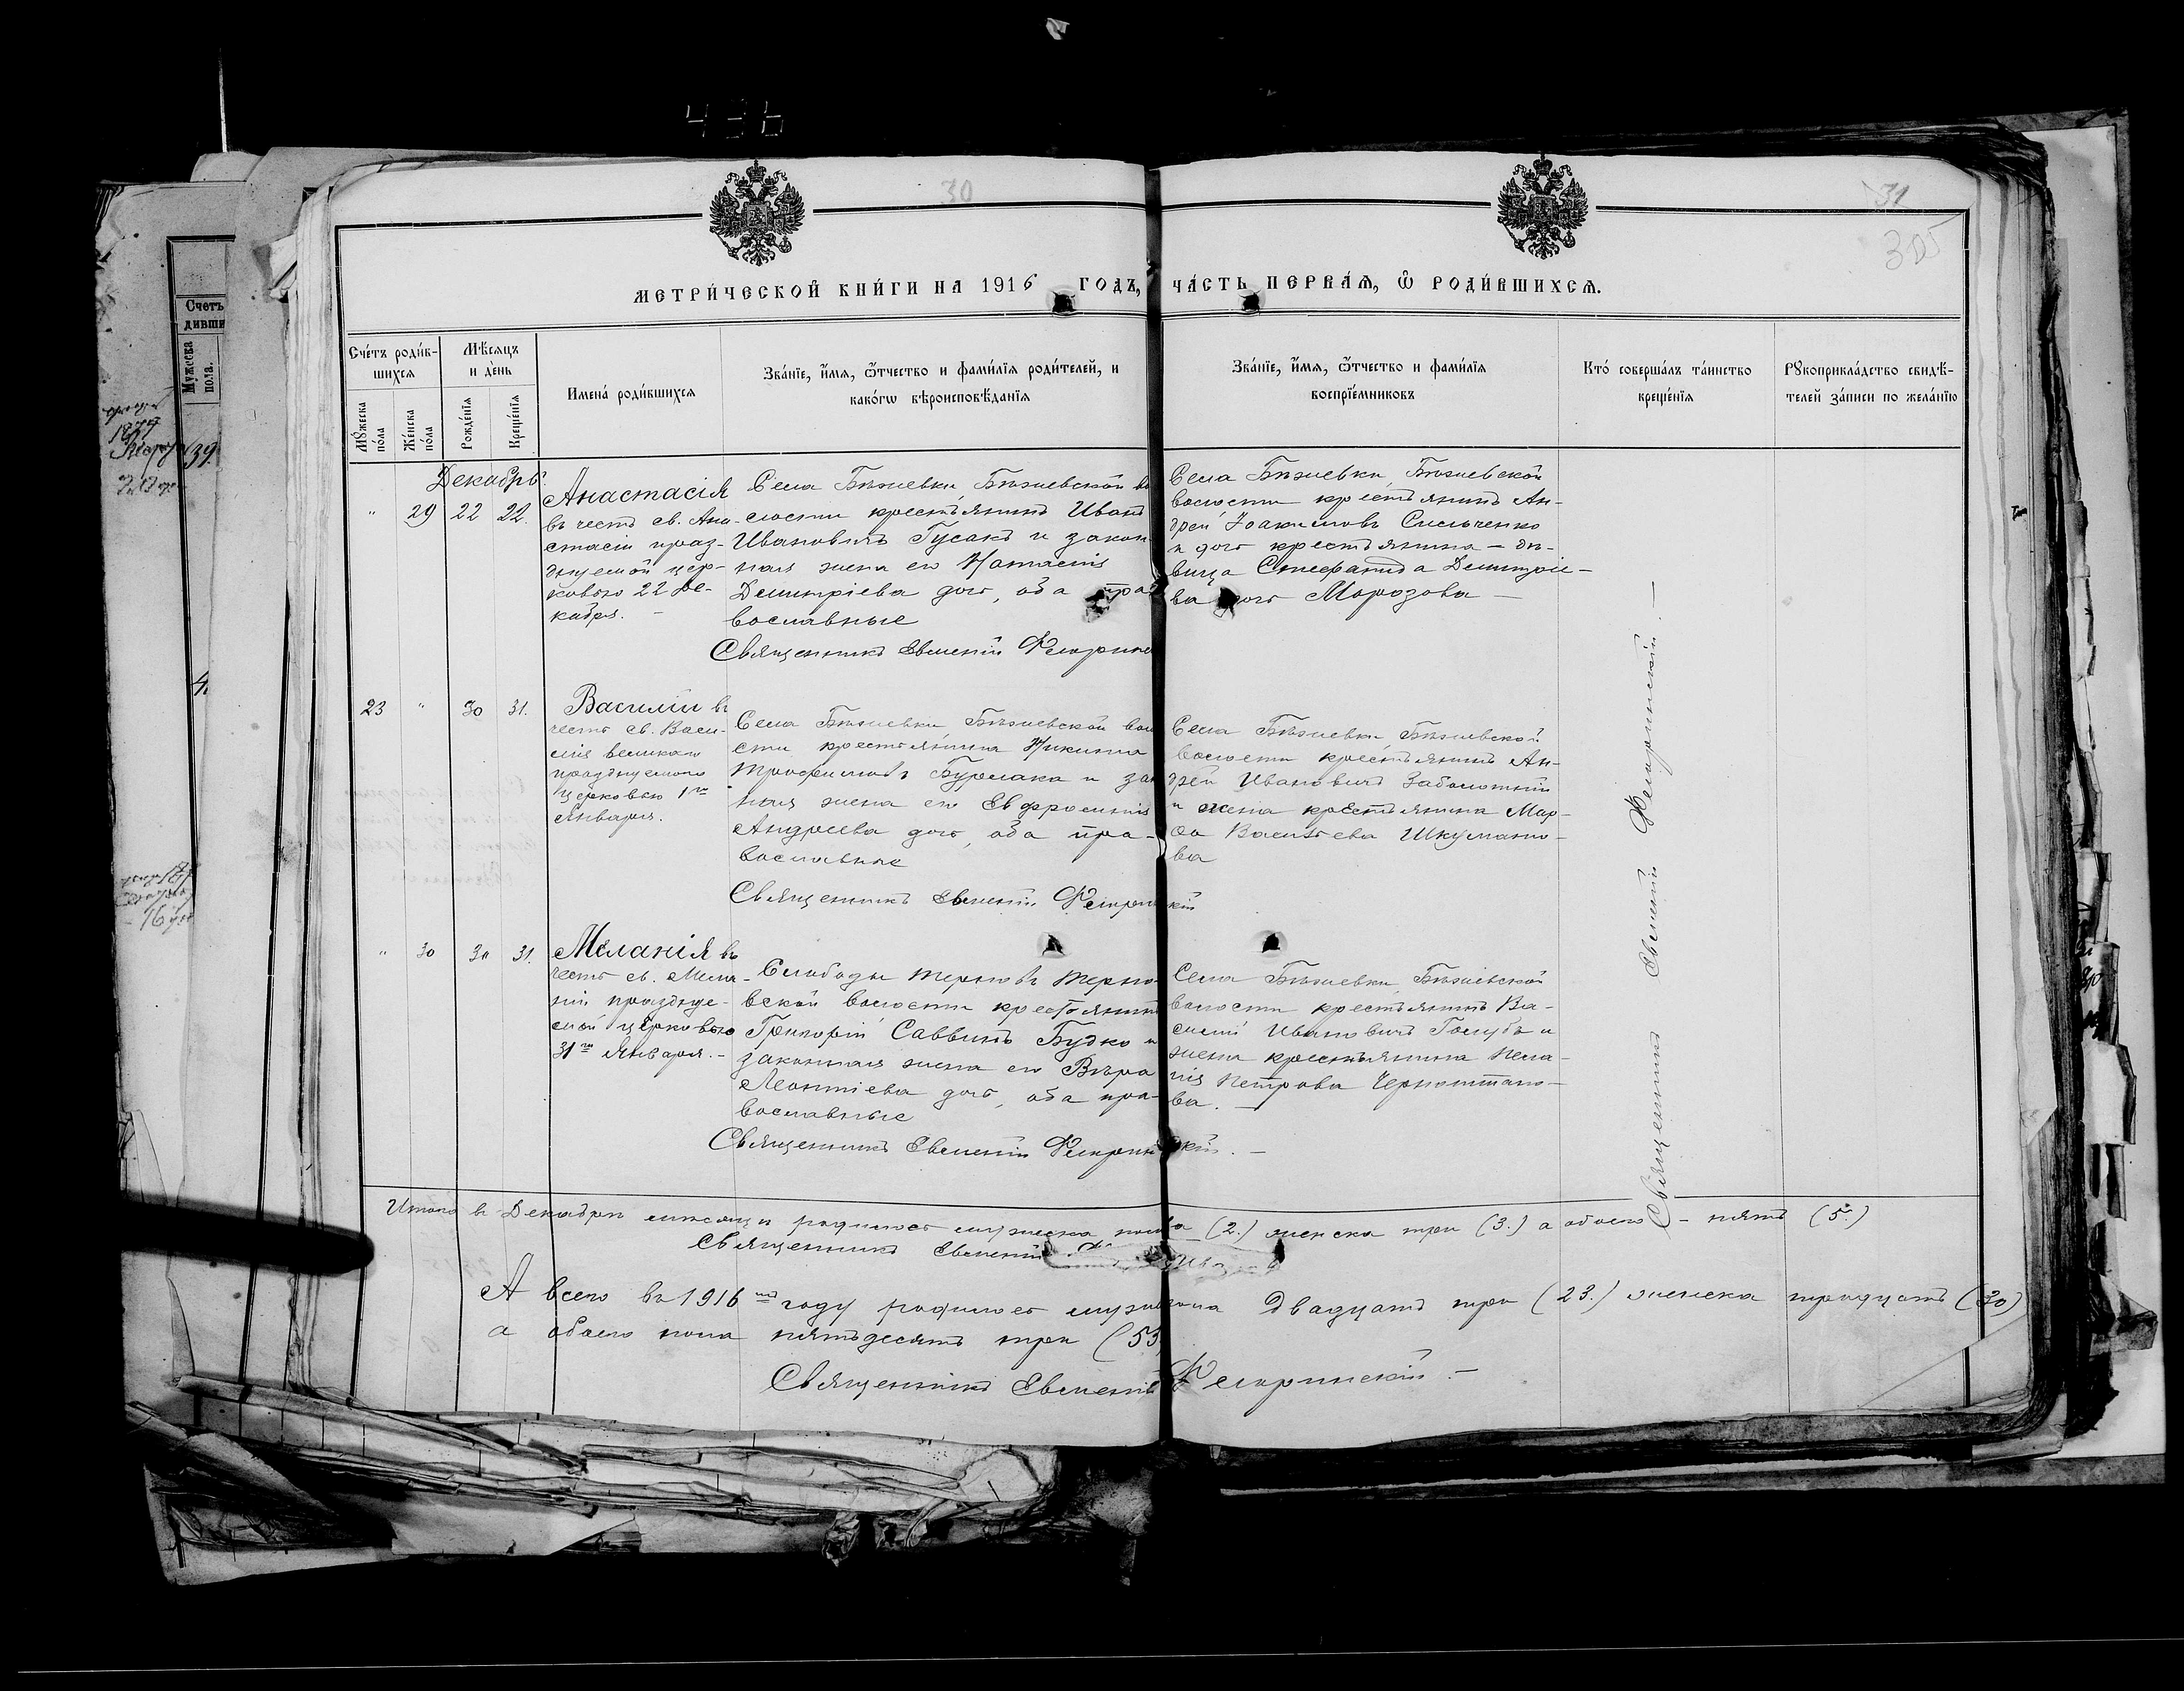 436
30
31
305
МЕТРИ́ЧЕСКОЙ КНИ́ГИ НА 1916 ГОДЪ, ЧА́СТЬ ПЕРВАѦ, Ѽ РОДИ́ВШИХСѦ.
Счетъ
дивши
Мужеска
пола.
Сче́тъ роди́в-
шихсѧ
Мѣ́сѧцъ
и де́нь
Мꙋ́жеска по́ла
Же́нска по́ла
Рожде́нїѧ
Креще́нїѧ
Имена̀ роди́вшихсѧ
Зва́нїе, и́мѧ, ѻ҆́тчество и фами́лїѧ роди́телей, и
како́гѡ вѣроисповѣ́данїѧ
Зва́нїе, и́мѧ, ѻ҆́тчество и фами́лїѧ
воспрїе́мниковъ
Кто̀ соверша́лъ та́инство
креще́нїѧ
Рꙋкоприкла́дство свидѣ́-
телей за́писи по жела́нїю
Декабрь.
" 29 22 22.
Анастасія
въ честь св. Ана-
стасіи праз-
днуемой цер-
ковью 22 Де-
кабря. –
Села Бѣжевки, Бѣжевской во
лости крестьянинъ Иванъ
Ивановичъ Гусакъ и закон
ная жена его
Димитріева дочь, оба прав
вославные
Священникъ Евменій
Села Бѣжевки, Бѣжевской
волости крестьянинъ Ан-
дрей Іоакимовъ Сильченко
и дочь крестьянина – дѣ-
вица Стефанида Димитріе-
ва дочь Морозова –
23 " 30 31.
Василій въ
честь св. Васи-
лія великаго
празднуемаго
церковью 1го
Января.
Села Бѣжевки, Бѣжевской воло
сти крестьянина Никита
Трофимовъ Бурлака и зак
ная жена его Евфросинія
Андреева дочь, оба пра-
вославные
Священникъ Евменій
Села Бѣжевки, Бѣжевской
волости крестьянинъ Ан-
дрей Ивановичъ Заболотній
и жена крестьянина Мар-
ѳа Васильева Шкумато-
ва
" 30 30 31.
Меланія въ
честь св. Мела-
ніи праздну е-
мой церковью
31го Января. –
Слободы Терновъ Терно-
вской волости крестьянин
Григорій Саввинъ Будко и
законная жена его Вѣра
Леонтіева дочь, оба пра-
вославные
Священникъ Евменій
Села Бѣжевки, Бѣжевской
волости крестьянинъ Ва-
силій Ивановичъ Голубъ и
жена крестьянина Пела-
гія Петрова Черноштано-
ва. –
Священникъ Евменій
Итого въ Декабрѣ мѣсяцѣ родилось мужеска пола (2.) женска три (3.) а обоего – пять (5.)
Священникъ Евменій
А всего въ 1916мъ году родилось муж. пола двадцать три (23.) женска тридцать (30)
а обоего пола пятьдесятъ три (53
Священникъ Евменій